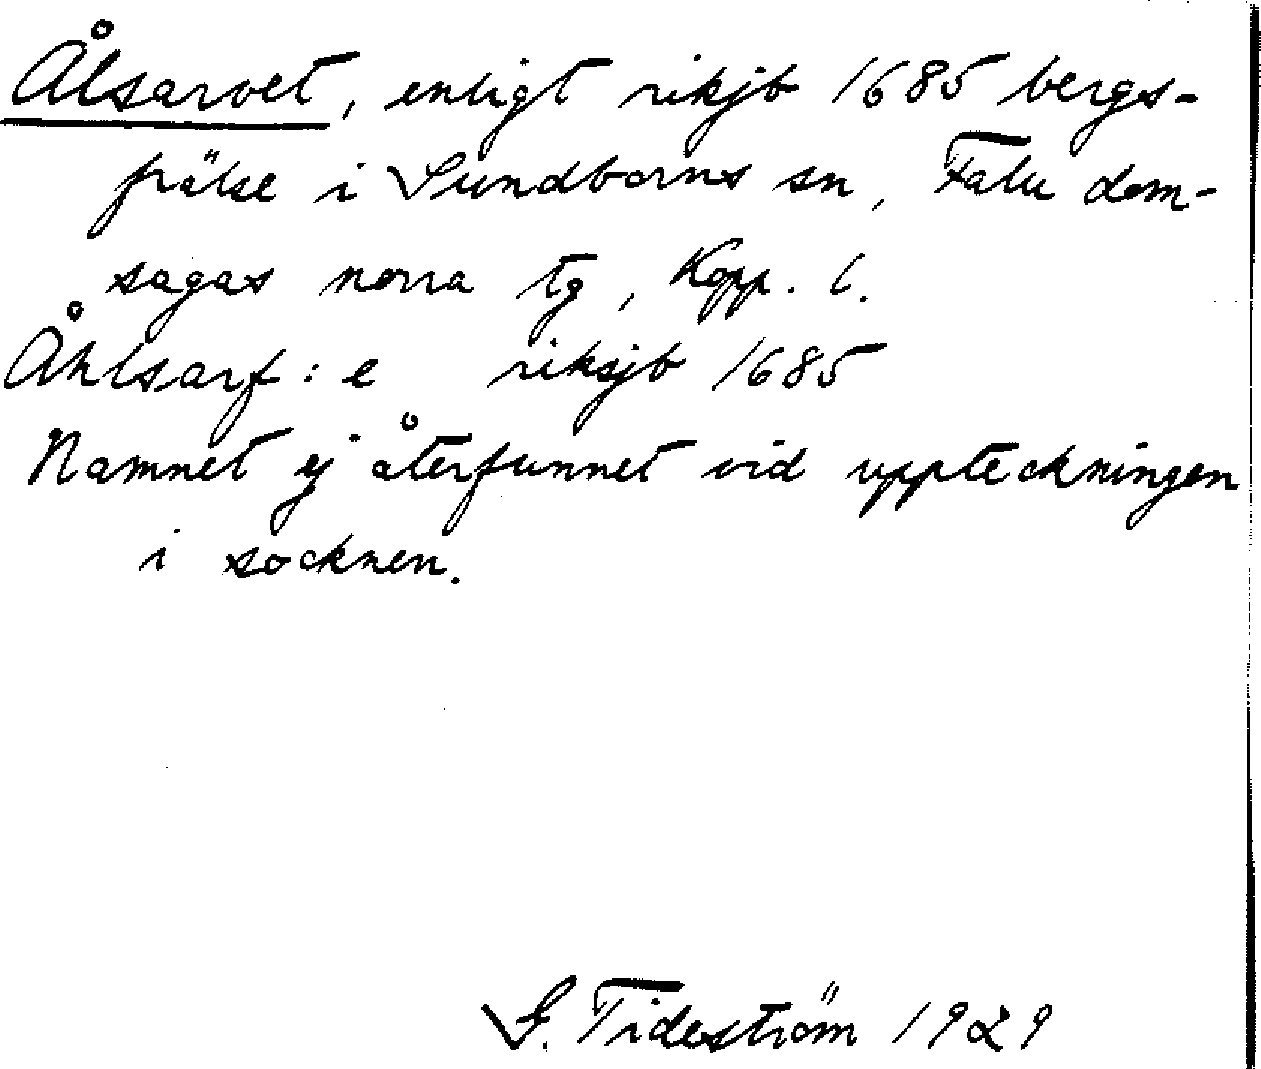 Ålsarvet, enligt rikjb 1685 bergs-
frälse i Sundborns sn, Falu dom-
sagas norra tg, Kopp. l.
Åhlsarf:e riksjb 1685
Namnet ej återfunnet vid uppteckningen
i socknen.
G. Tideström 1929